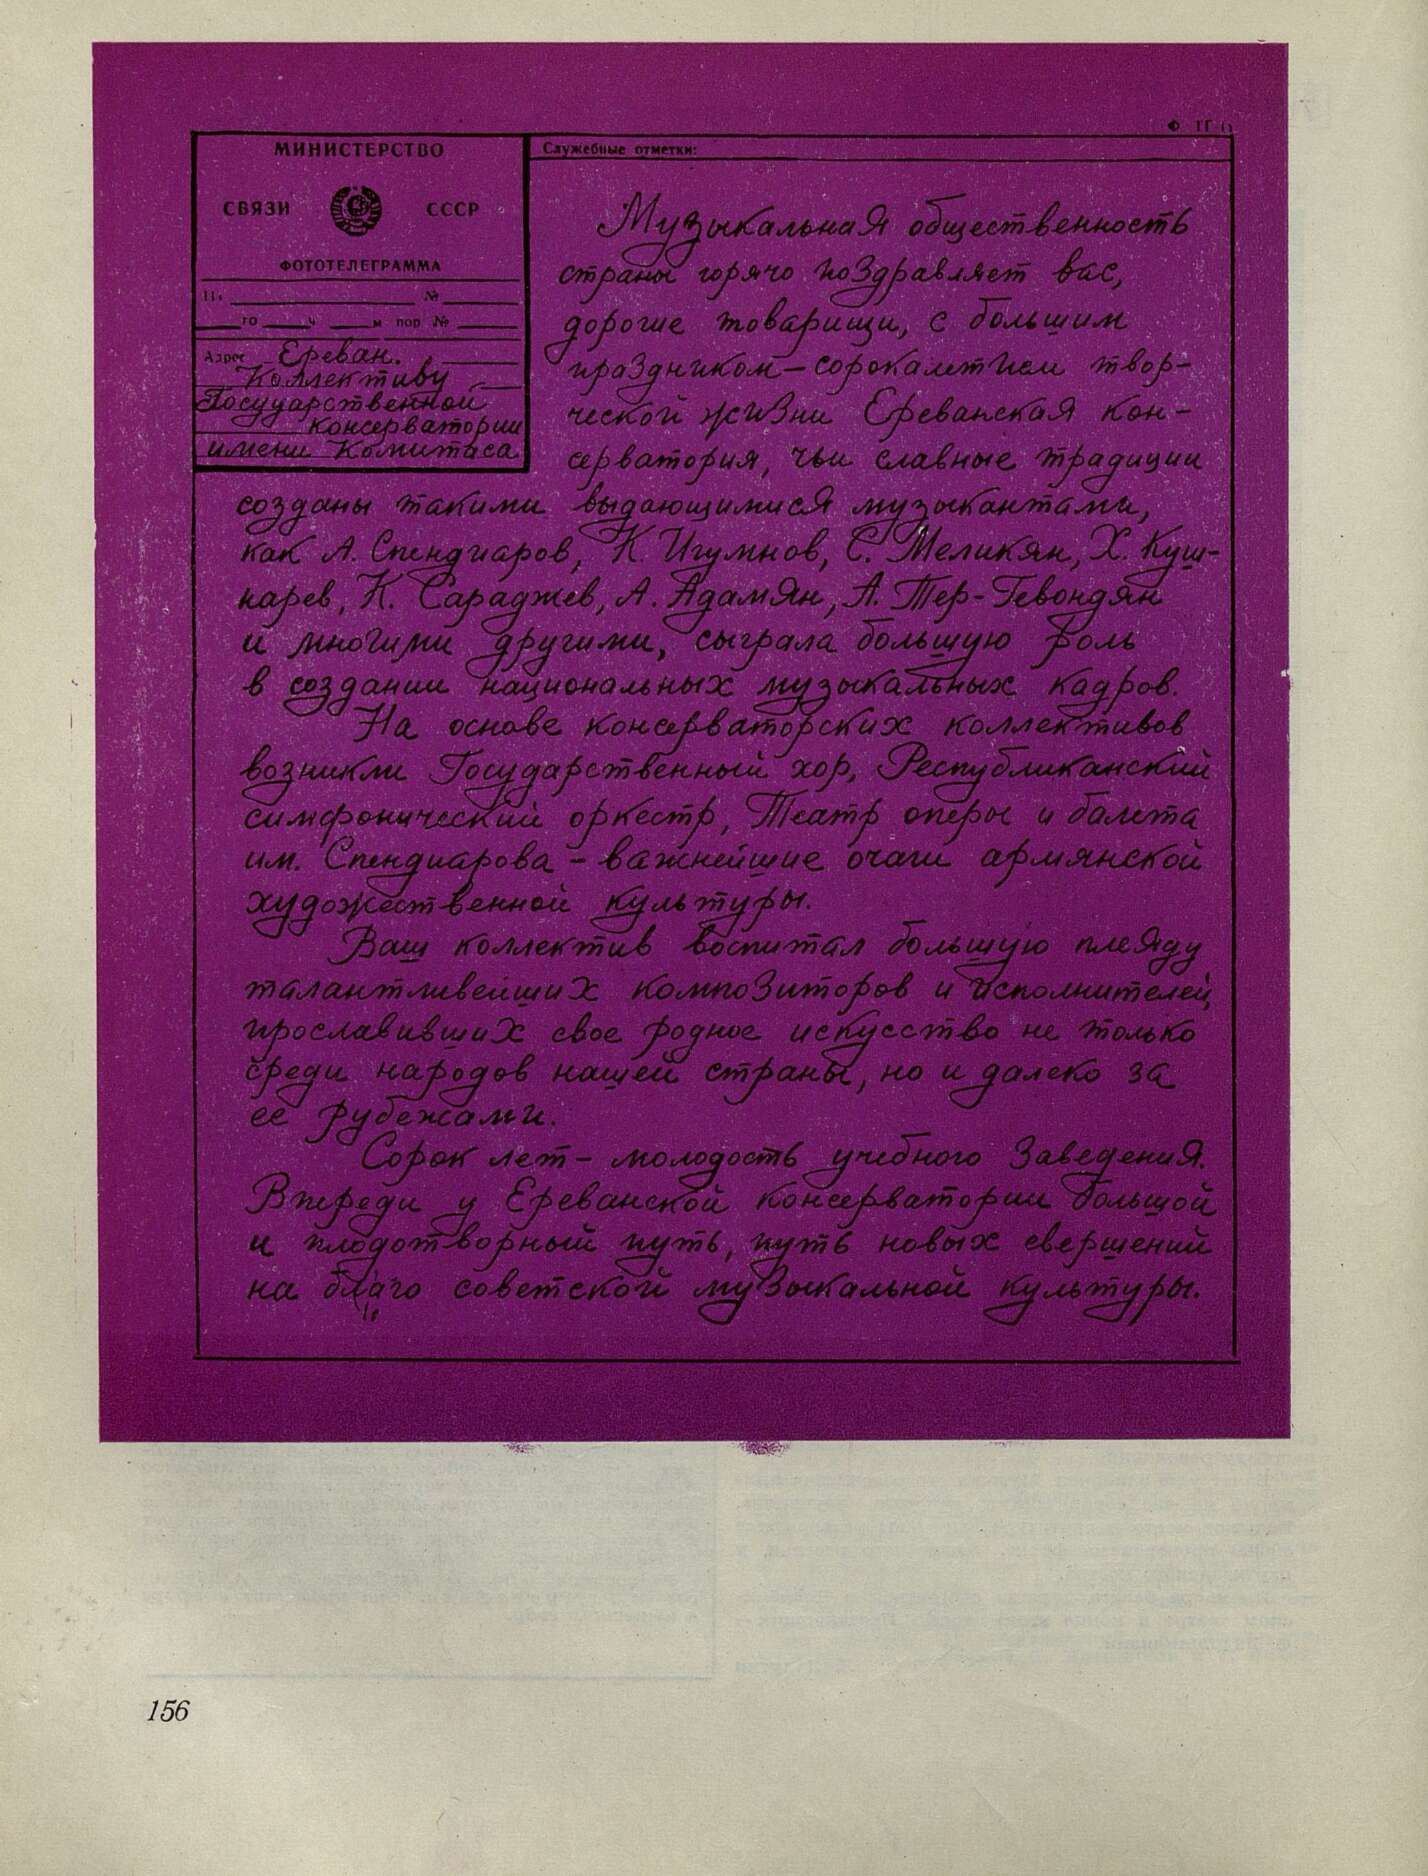 МИНИСТЕРСТВО
СВЯЗИ СССР
ФОТОТЕЛЕГРАММА
№
го ч м пор №
Адрес Ереван.
Коллективу
Государственной
Консерватории
имени Комитаса
Служебные отметки:
Музыкальная общественность
страны горячо поздравляет вас,
дорогие товарищи, с большим
праздником — сорокалетием твор-
ческой жизни Ереванская кон-
серватория, чьи славные традиции
созданы такими выдающимися музыкантами,
как А. Спендиаров, К. Игумнов, С. Меликян, Х. Куш-
нарев, К. Сараджев, А. Адамян, А. Тер-Гевондян
и многими другими, сыграла большую роль
в создании национальных музыкальных кадров.
На основе консерваторских коллективов
возникли Государственный хор, Республиканский
симфонический оркестр, Театр оперы и балета
им. Спендиарова – важнейшие очаги армянской
художественной культуры.
Ваш коллектив воспитал большую плеяду
талантливейших композиторов и исполнителей,
прославивших свое родное искусство не только
среди народов нашей страны, но и далеко за
ее рубежами.
Сорок лет – молодость учебного заведения.
Впереди у Ереванской консерватории большой
и плодотворный путь, путь новых свершений
на благо советской музыкальной культуры.
156